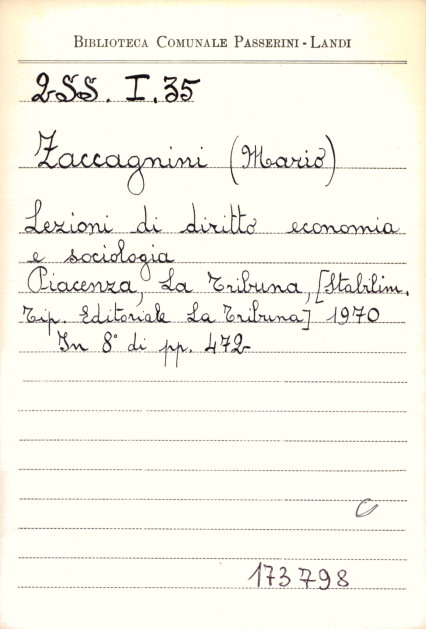 BIBLIOTECA COMUNALE PASSERINI - LANDI
2SS. I. 35
Zaccagnini (Mario)
Lezioni di diritto economia
e sociologia
Piacenza, La Tribuna, [Stabilim.
Tip. Editoriale La Tribuna] 1970
In 8° di pp. 472
C
173798